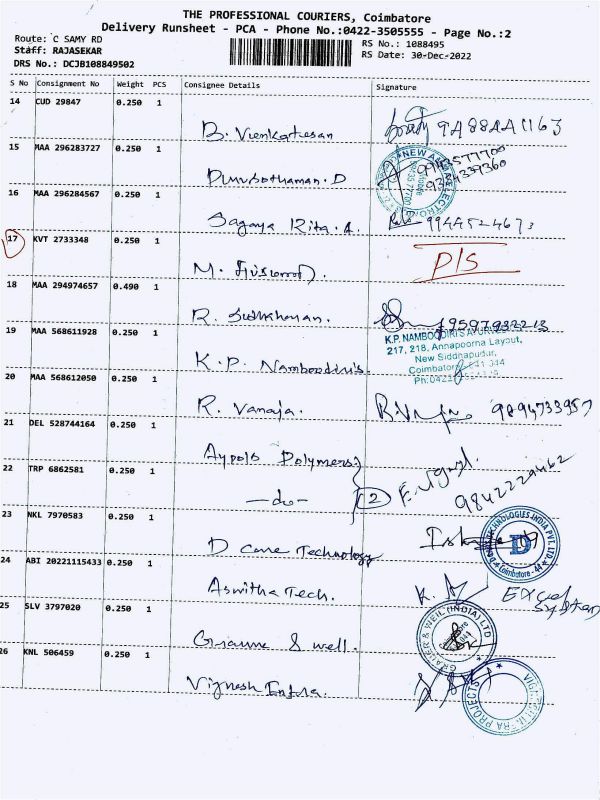 THE PROFESSIONAL COURIERS, Coimbatore
Delivery Runsheet - PCA - Phone No.:0422-3505555 - Page No.:2
Route: C SAMY RD
RS No.: 1088495
Staff: RAJASEKAR
RS Date: 30-Dec-2022
DRS No.: DCJB108849502
S No Consignment No Weight PCS Consignee Details Signature
14 CUD 29847 0.250 1
B. Venkatesan
15 MAA 296283727 0.250 1
9443577700
9324339360
Purusothaman. D
16 MAA 296284567 0.250 1
Sagaya Rita. A. 9944524673
17 KVT 2733348 0.250 1
P/S
18 MAA 294974657 0.490 1
R. Sudharsan.
19 MAA 568611928 0.250 1
K.P. NAMBOODIRI'S AYURVEDIC
217, 218, Annapoorna Layout,
New Siddhapudur,
Coimbatore 641 044
K.P. Namboodiris.
20 MAA 568612050 0.250 1
R. Vanaja. 9894733957
21 DEL 528744164 0.250 1
Aypols Polymers
22 TRP 6862581 0.250 1
-do- 2
9842229462
23 NKL 7970583 0.250 1
D care Technology
D
Coimbatore-44
24 ABI 20221115433 0.250 1
Aswitha Tech. Excel System
25 SLV 3797020 0.250 1
GRAUER & WEIL (INDIA) LTD
Graune & well.
26 KNL 506459 0.250 1
Vignesh Infra.